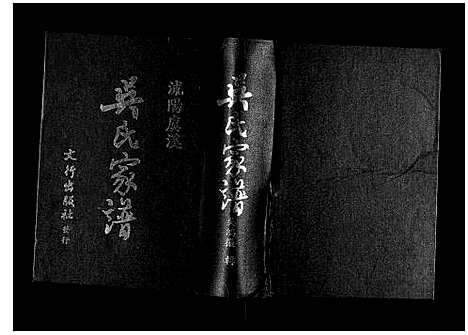 流陽虞溪
吳氏家譜
文行出版社 發行
吳氏家譜